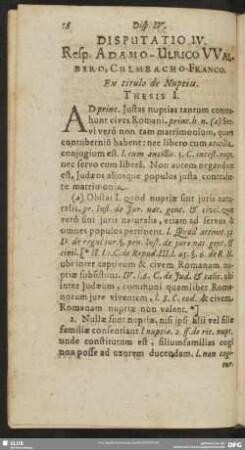 18 Disp. IV.
DISPUTATIO IV.
Resp. ADAMO-ULRICO VVAL-
BERO, CULMBACHO-FRANCO.
Ex titulo de Nuptiis.
THESIS I.
AD princ. Justas nuptias tantum contra-
hunt cives Romani, princ. h. n. (a) Ser-
vi verò non tam matrimonium, quàm
contubernium habent: nec libero cum ancilla
conjugium est. l. cum ancillis. 3. C. incest. nupt.
nec servo cum liberâ. Non autem negandum
est, Judæos aliosque populos justa contrahe-
re matrimonia.
(a) Obstat I. quod nuptiæ sint juris natu-
ralis. pr. Inst. de Jur. nat. gent. & civil. quæ
verò sint juris naturalis, etiam ad servos &
omnes populos pertinent. l.
D. de §. pen. Inst. de jure nat. gent. &
civil. [*
ubi inter captivum & civem Romanam nu-
ptiæ subsistunt. IV. C. de Jud. & cælic.
ubi
inter Judæum, communi quamlibet Roma-
norum jure viventem, l. 8. C. eod. & civem
Romanam nuptiæ non valent. *]
2. Nullæ sunt nuptiæ, nisi ipsi filii vel filiæ
familiâs consentiant. l. nuptiæ. 2. ff. de rit. nupt.
unde constitutum est, filiumfamiliâs cogi
non posse ad uxorem ducendam. l. non cogi-
tur.